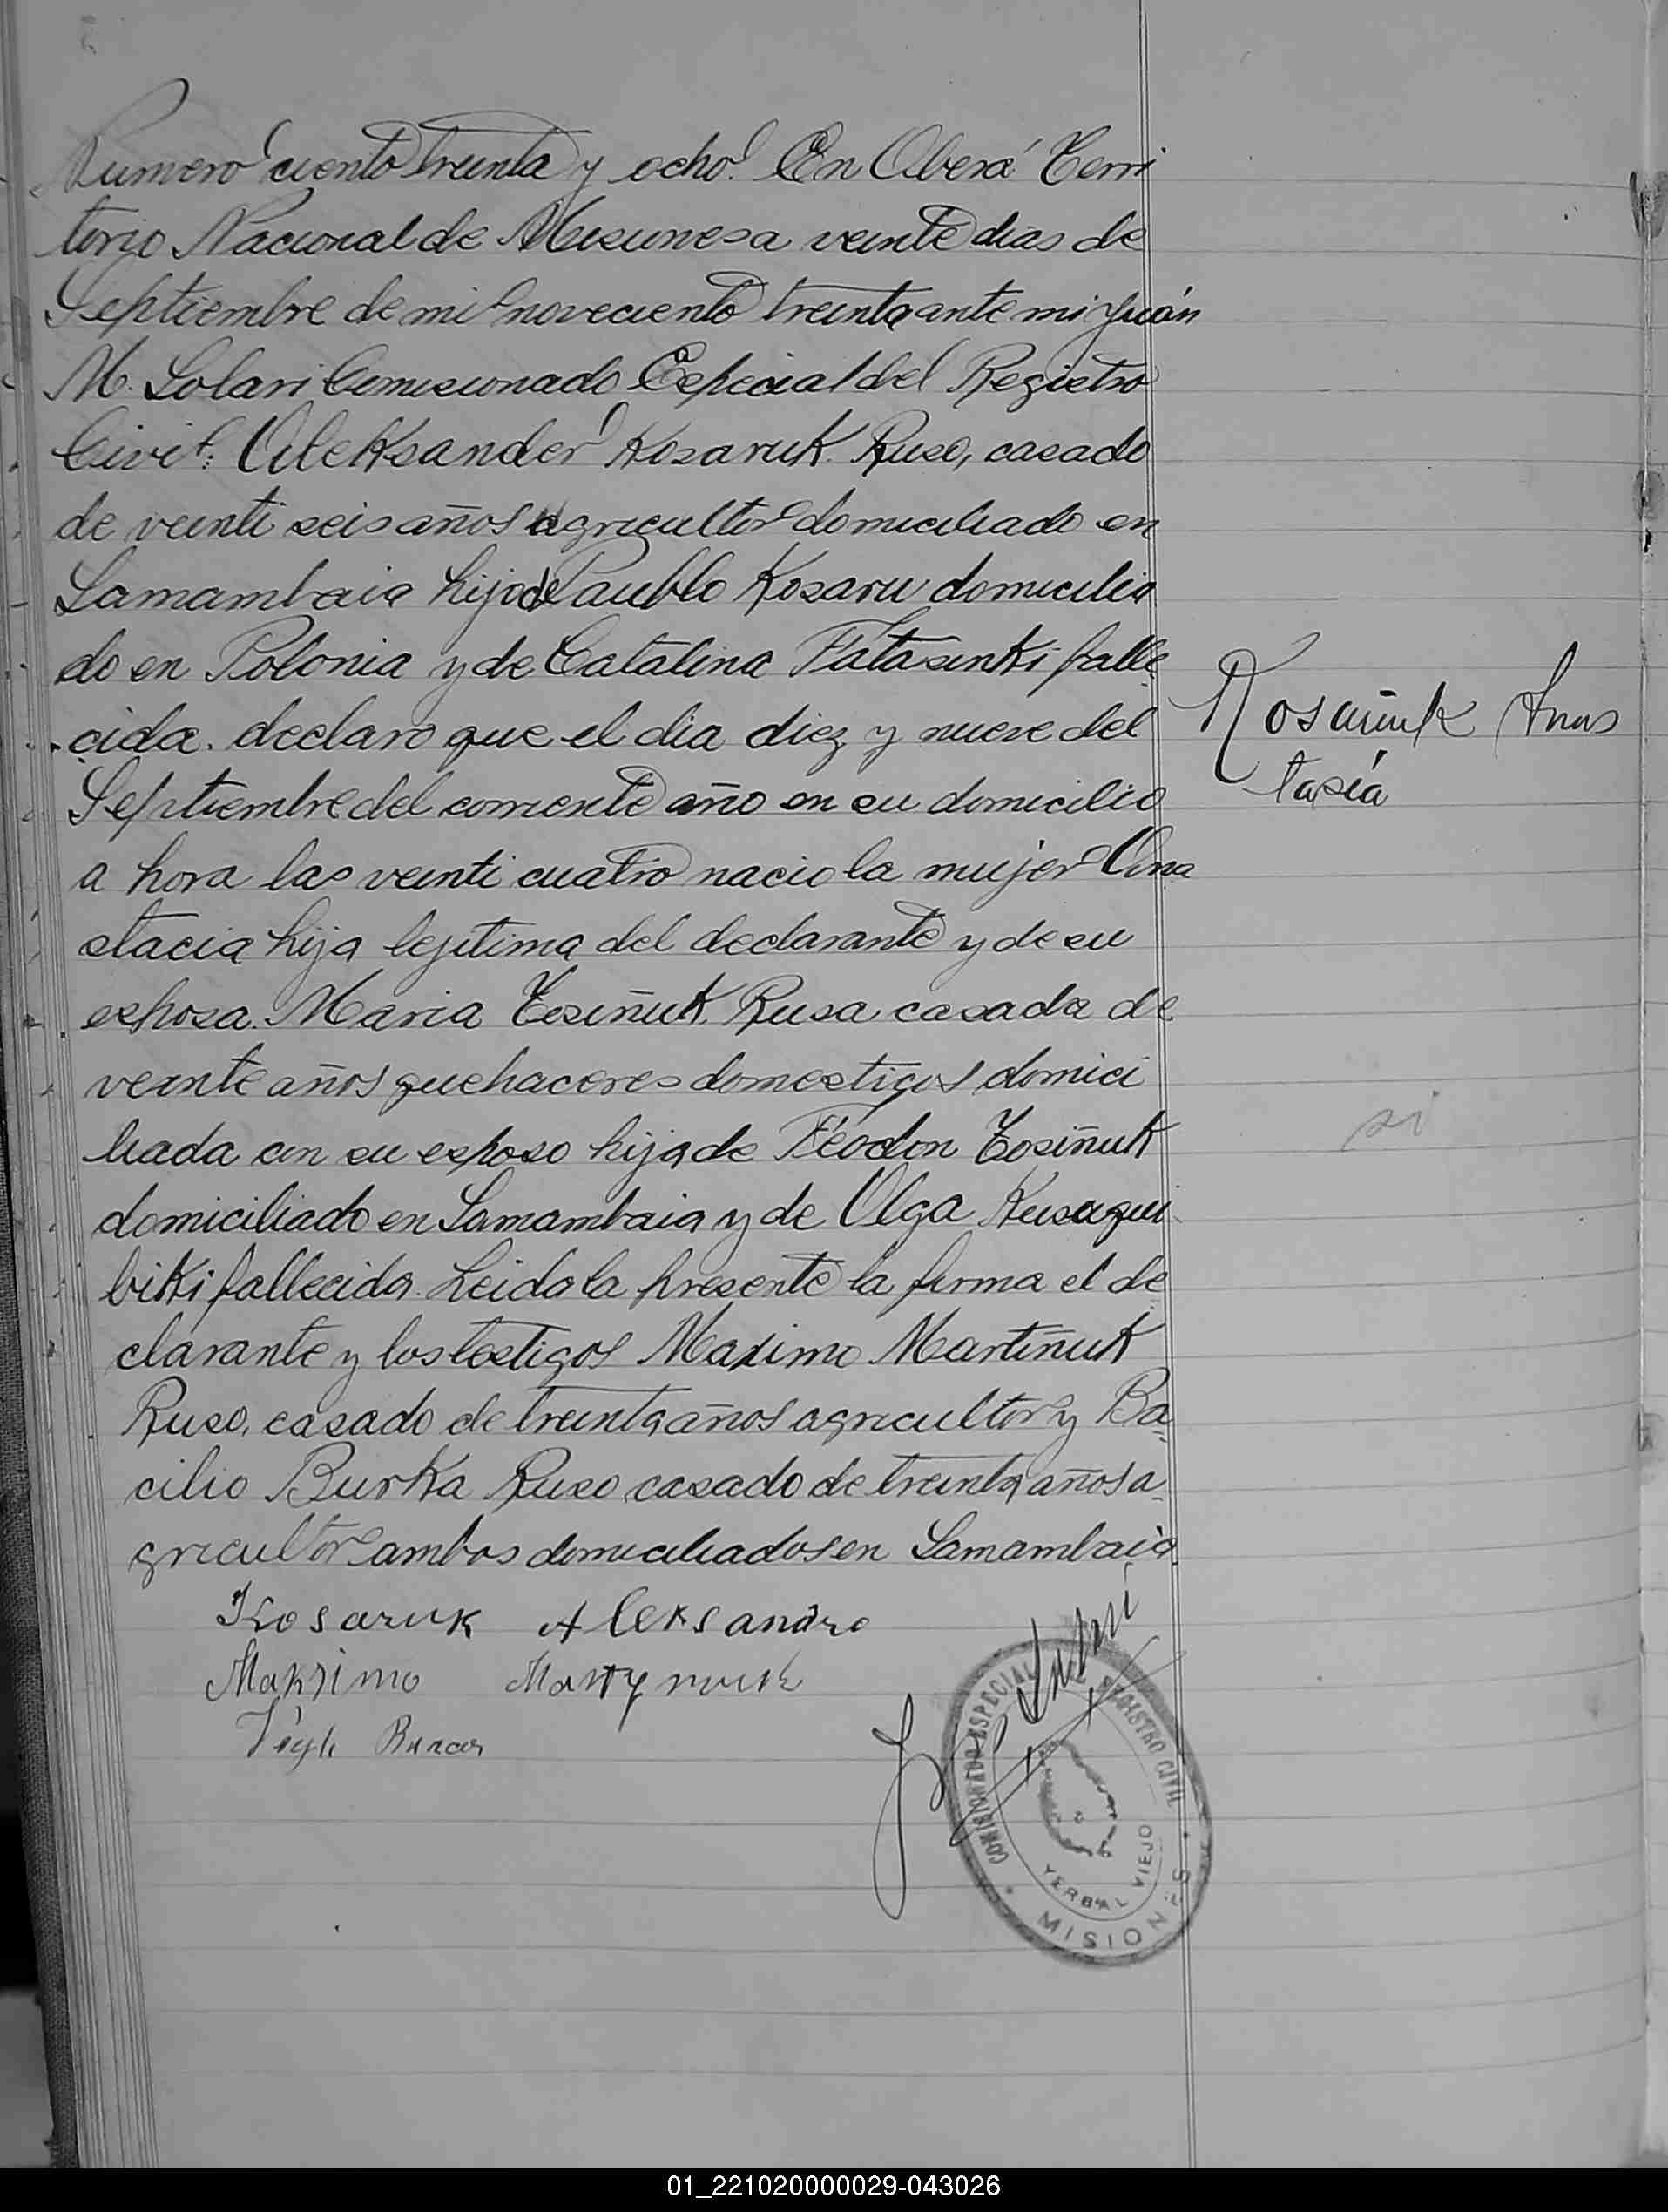 Numero ciento treinta y ocho. En Oberá Terri
torio Nacional de Misiones a veinte dias de
Septiembre de mil noveciento treinta ante mi Juán
M. Solari Comisionado Especial del Registro
Civil: Aleksander Kosaruk Ruso, casado
de veinti seis años agricultor domiciliado en
Samambaia hijo de Paublo Kosaru domicilia
do en Polonia y de Catalina Fatasinki falle
cida. declaro que el dia diez y nueve del
Septiembre del corriente año en su domicilio
a hora las veinti cuatro nacio la mujer Ana
stacia hija lejitima del declarante y de su
esposa. Maria Tosiñuk Rusa casada de
veinte años quehaceres domestigos domici
liada con su esposo hija de Féodon Tosiñuk
domiciliado en Samambaia y de Olga Kusaqui
biki fallecida. Leida la presente la firma el de
clarante y los testigos Maximo Martiñuk
Ruso, casado de treinta años agricultor y Ba
cilio Burka Ruso casado de treinta años a
gricultor ambos domiciliados en Samambaia
Kosaruk Aleksandro
Maksimo Martynuk
Kosaruk Anas
tasia
si
J. M. Solari
COMISIONADO ESPECIAL REGISTRO CIVIL
YERBAL VIEJO
MISIONES
01_221020000029-043026